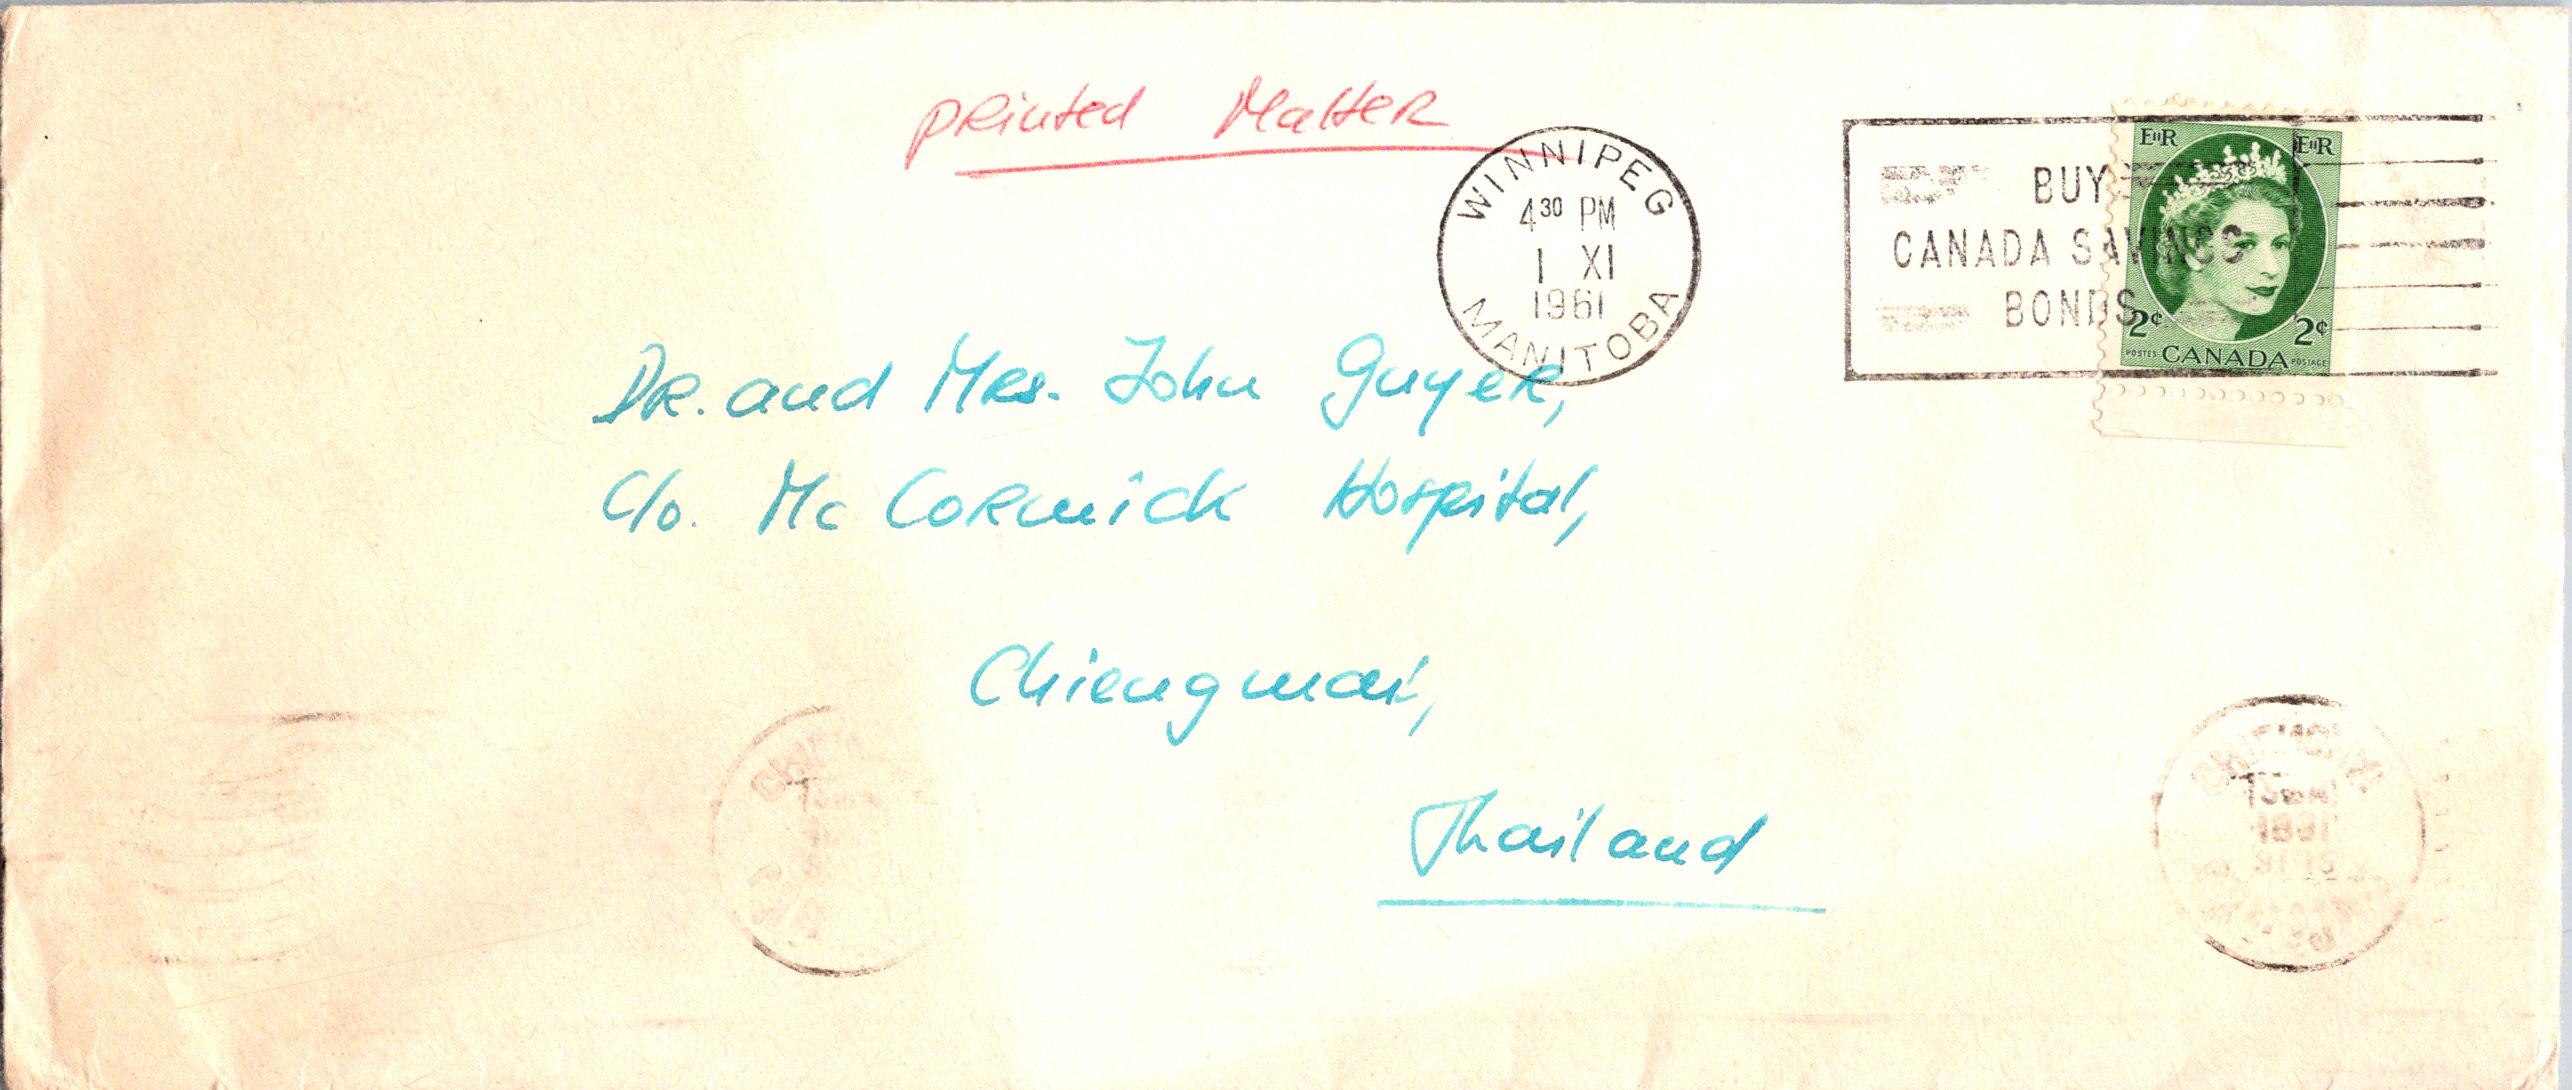 Printed Matter
WINNIPEG
4 30 PM
1 XI
1961
MANITOBA
BUY
CANADA SAVINGS
BONDS
EIIR EIIR
2¢ 2¢
POSTES CANADA POSTAGE
Dr. and Mrs. John Guyer,
c/o. Mc Cormick Hospital,
Chiengmai,
Thailand